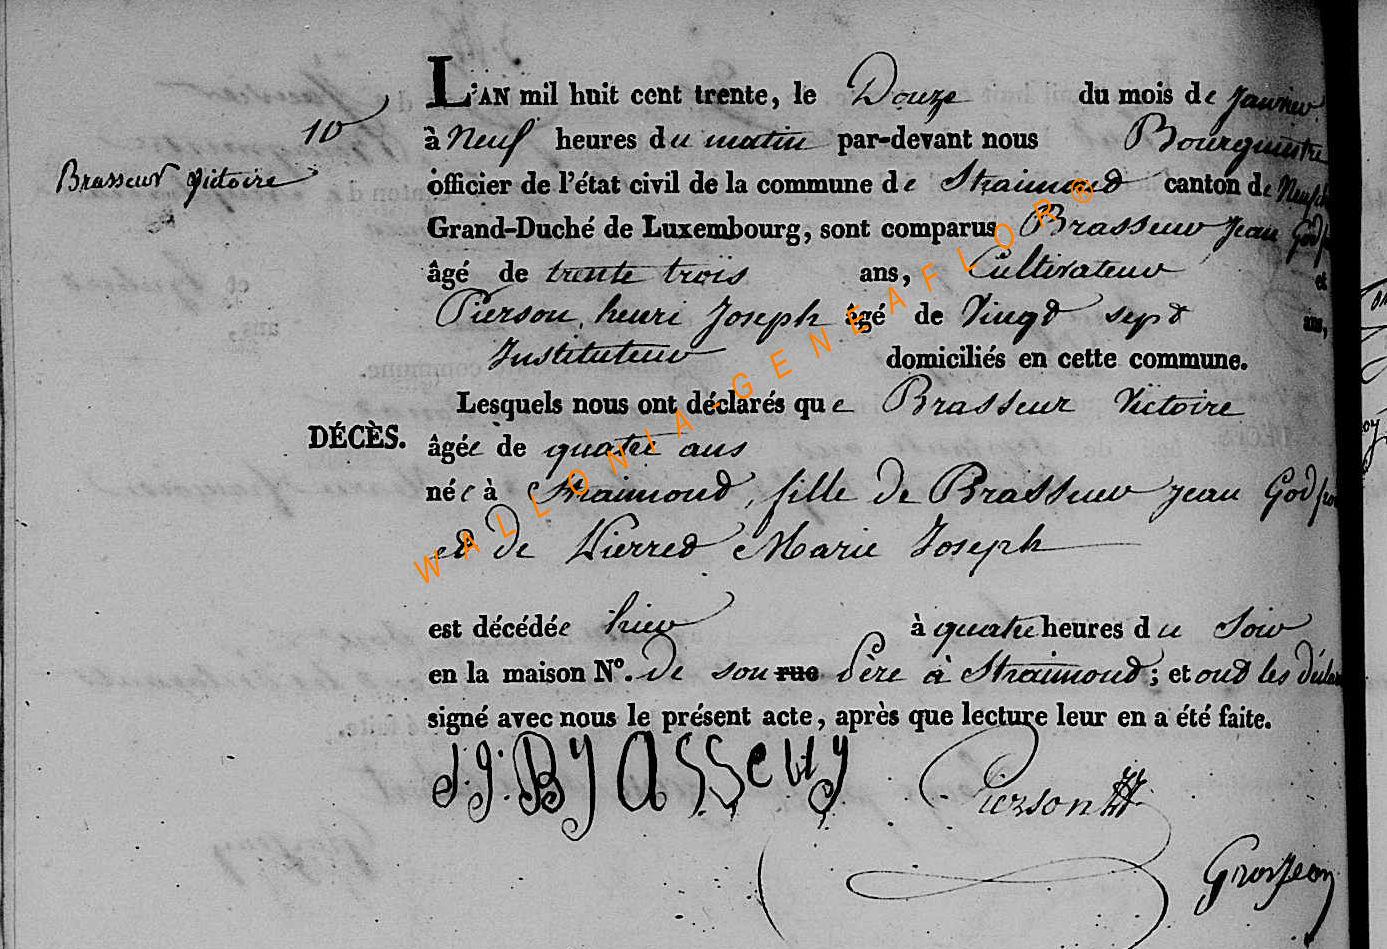 L'AN mil huit cent trente, le Douze du mois de Janvier
10
à Neuf heures du matin par-devant nous Bourgmestre
Brasseur Victoire
officier de l'état civil de la commune de Straimond canton de Neufch
Grand-Duché de Luxembourg, sont comparus Brasseur Jean Godf
âgé de trente trois ans, Cultivateur et
Pierson, henri Joseph âgé de Vingt sept ans,
Instituteur domiciliés en cette commune.
Lesquels nous ont déclarés que Brasseur Victoire
DÉCÈS.
âgée de quatre ans
née à Straimond, fille de Brasseur Jean Godfroi
et de Pierred Marie Joseph
est décédée hier à quatre heures du Soir
en la maison N°. de son rue Père à Straimond ; et ont les déclar
signé avec nous le présent acte, après que lecture leur en a été faite.
J. G. Brasseur Pierson HJ
Grosjean
WALLONIA-GENEAFLOR®